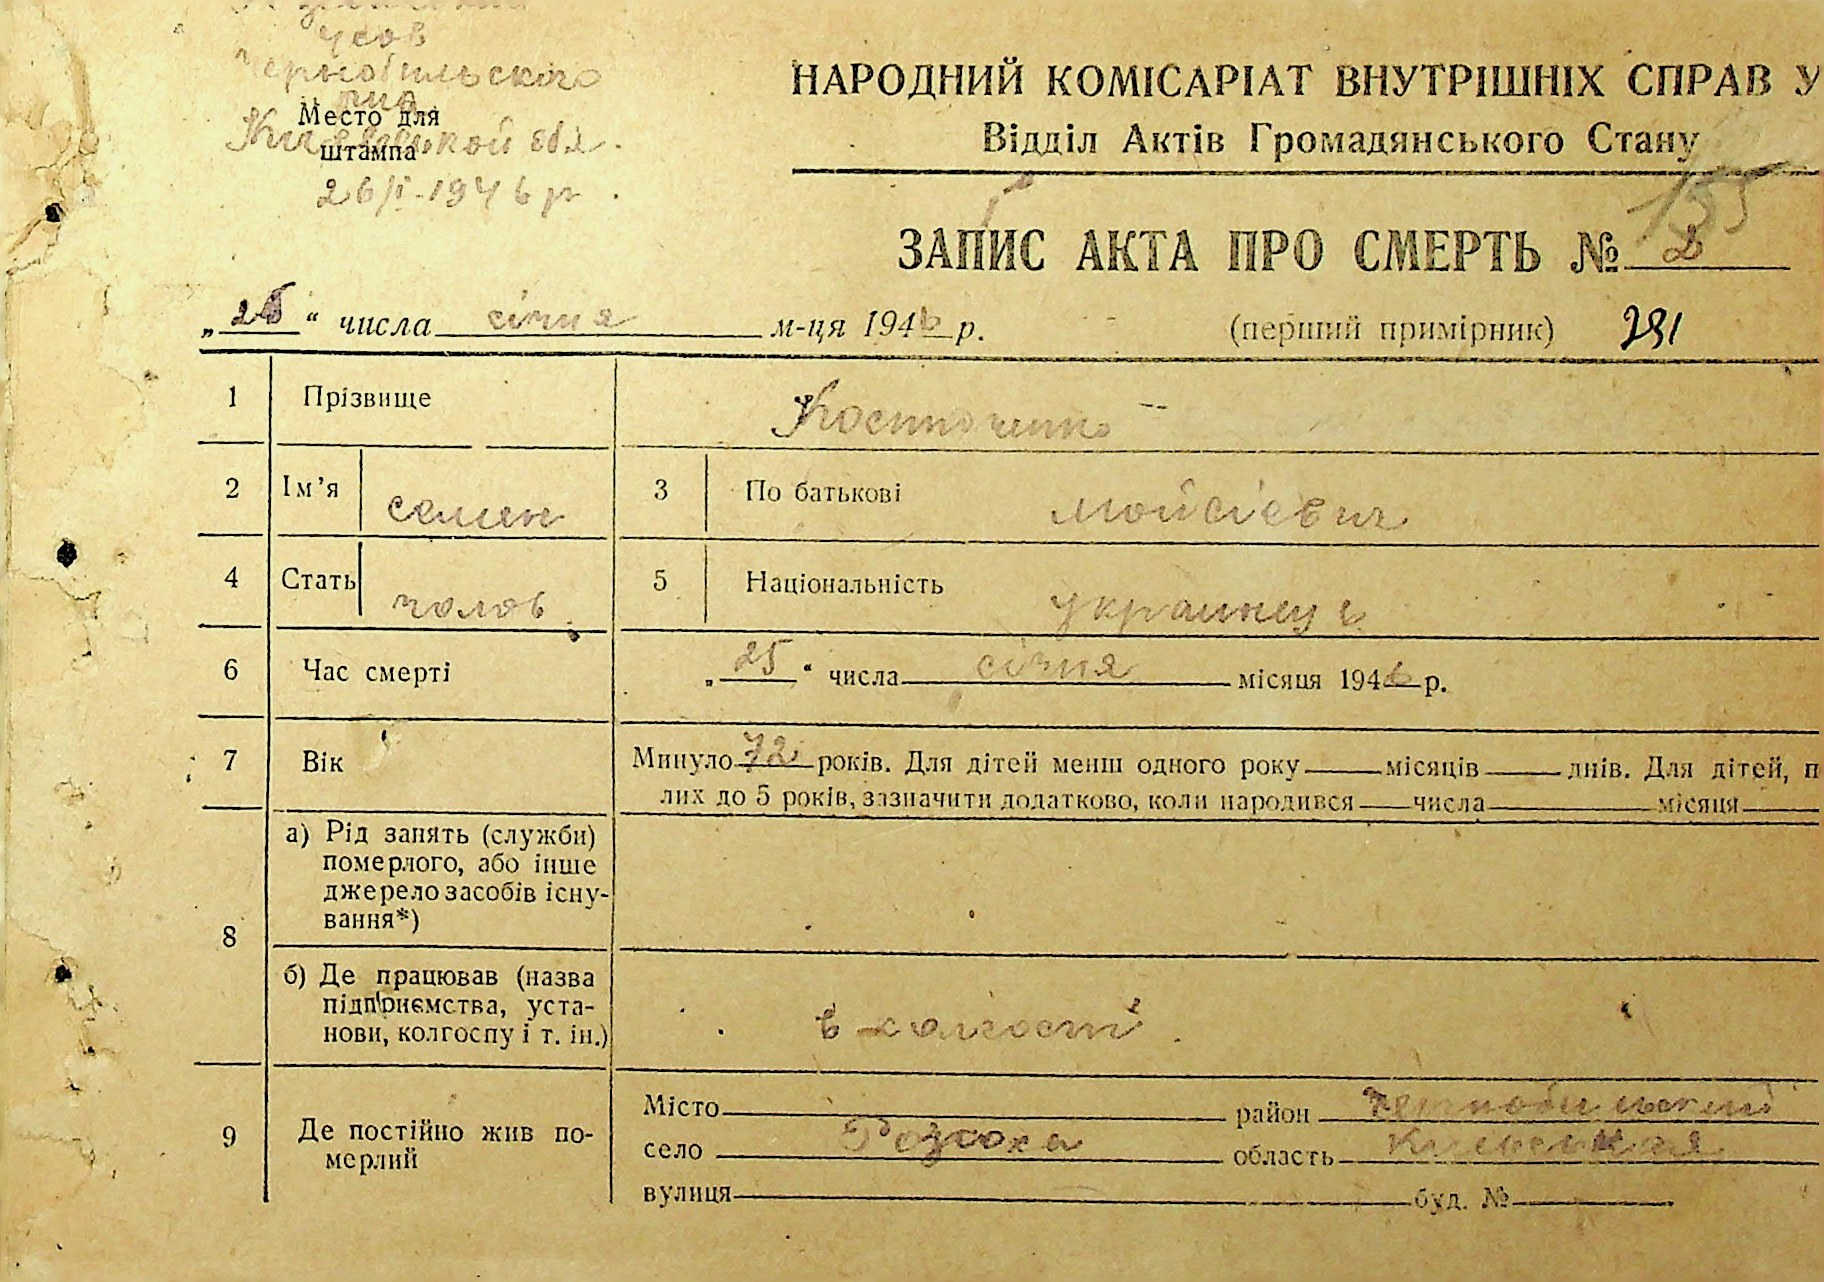 Чернобильского
рна
Место для
Киевской обл.
штампа
26/I-1946 р.
НАРОДНИЙ КОМІСАРІАТ ВНУТРІШНІХ СПРАВ У
Відділ Актів Громадянського Стану
155
ЗАПИС АКТА ПРО СМЕРТЬ № 2
„26“ числа січня м-ця 1946 р. (перший примірник) 281
1 Прізвище Костюченко
2 Ім’я семен 3 По батькові мойсієвич
4 Стать чолов. 5 Національність
6 Час смерті „25“ числа січня місяця 1946 р.
7 Вік Минуло 72 років. Для дітей менш одного року місяців днів. Для дітей, п
лих до 5 років, зазначити додатково, коли народився числа місяця
8 а) Рід занять (служби)
померлого, або інше
джерело засобів існу-
вання*)
б) Де працював (назва
підприємства, уста-
нови, колгоспу і т. ін.) в колгоспі
9 Де постійно жив по-
мерлий
Місто район
село Розсоха область
вулиця буд. №